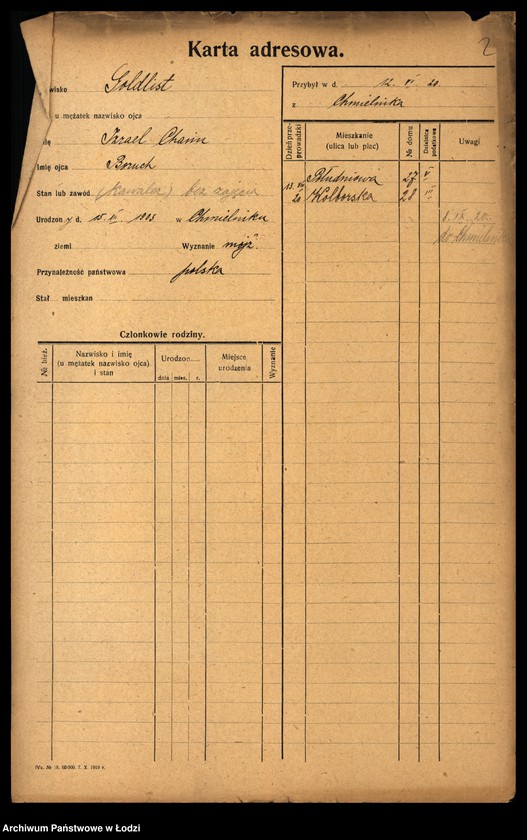 Karta adresowa.
2
wisko Goldlist
u mężatek nazwisko ojca
ię Izrael Chaim
Imię ojca Boruch
Stan lub zawód (kawaler) bez zajęcia
Urodzony d. 15. VI. 1903 w Chmielniku
ziemi Wyznanie mojż.
Przynależność państwowa polska
Stał mieszkan
Członkowie rodziny.
№ bież.
Nazwisko i imię
(u mężatek nazwisko ojca)
i stan
Urodzon
dnia mies. r.
Miejsce
urodzenia
Wyznanie
Przybył w d. 12. VI. 20.
z Chmielnika
Dzień przeprowadzki
Mieszkanie
(ulica lub plac)
№ domu
Dzielnica podatkowa
Uwagi
Południowa 27 V
13. VII 20 Wolborska 28 III
1. IX. 20.
do Chmielnik
7. X. 1919 r.
Archiwum Państwowe w Łodzi